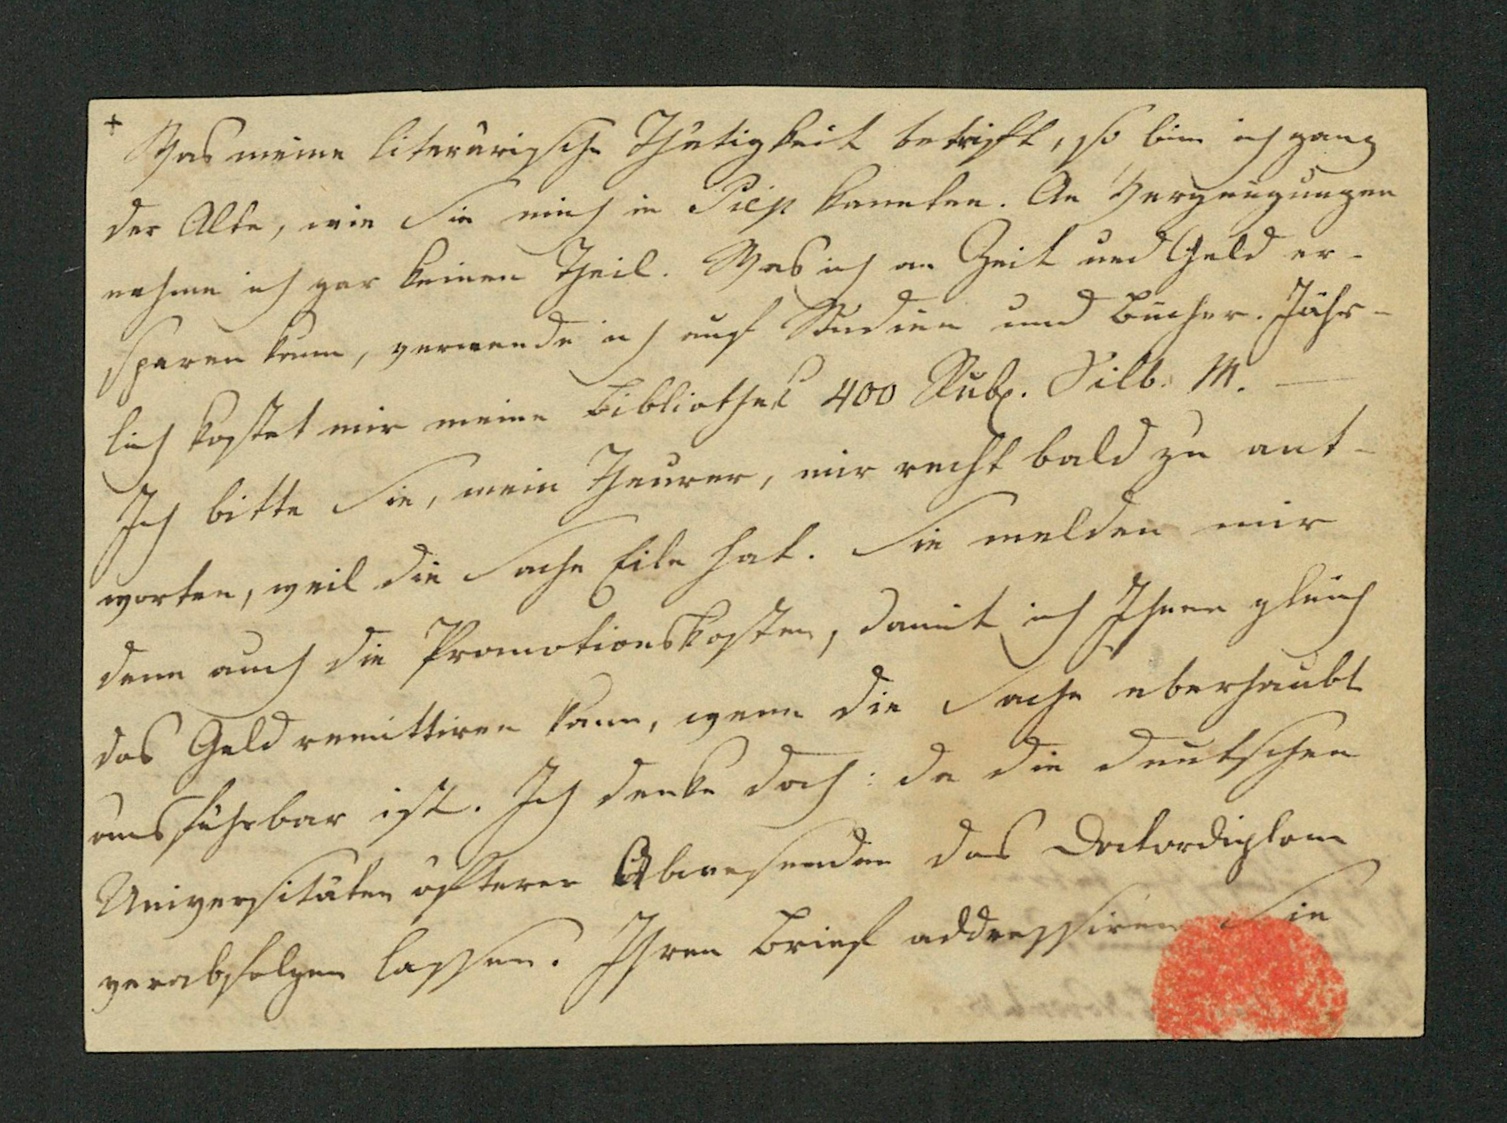 + Was meine literärische Thätigkeit betrifft, so bin ich ganz
der Alte, wie Sie mich in Piep kannten. An Vergnügungen
nehme ich gar keinen Theil. Was ich an Zeit und Geld er-
sparen kann, verwende ich auf Studien und Bücher. Jähr-
lich kostet mir meine Bibliothek 400 Rub. Silb. M. —
Ich bitte Sie, mein Theurer, mir recht bald zu ant-
worten, weil die Sache Eile hat. Sie melden mir
denn auch die Promotionskosten, damit ich Ihnen gleich
das Geld remittiren kann, wenn die Sache überhaubt
ausführbar ist. Ich denke doch: da die deutschen
Universitäten öfterer Abwesenden das Doctordiplom
verabfolgen lassen. Ihren Brief addressiren Sie